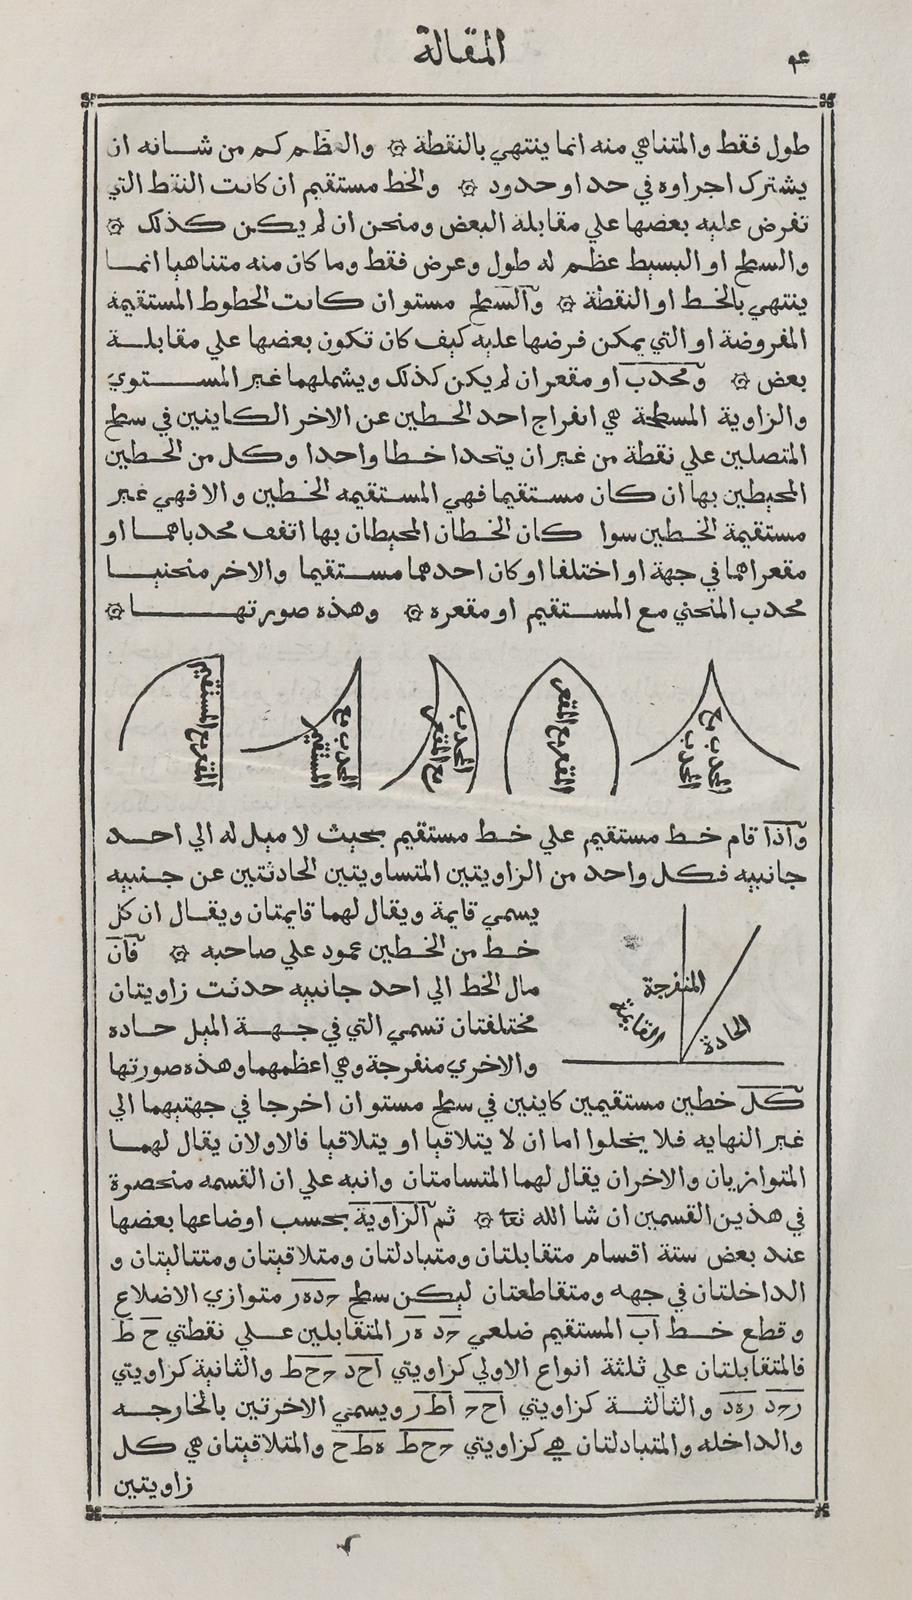 المقالة
طول فقط والمتناهي منه انما ينتهي بالنقطة ۞ والعظم كم من شانه ان
يشترك اجراوه في حد او حدود ۞ والخط مستقيم ان كانت النقط التي
تفرض عليه بعضها علي مقابلة البعض ومنحن ان لم يكن كذلك ۞
والسطح او البسيط عظم له طول وعرض فقط وما كان منه متناهيا انما
ينتهي بالخط او النقطة ۞ والسطح مستو ان كانت الخطوط المستقيمة
المفروضة او التي يمكن فرضها عليه كيف كان تكون بعضها علي مقابلة
بعض ۞ ومحدب او مقعر ان لم يكن كذلك ويشملهما غير المستوي
والزاوية المسطحة هي انفراج احد الخطين عن الاخر الكاينين في سطح
المتصلين علي نقطة من غير ان يتحدا خطا واحدا وكل من الخطين
المحيطين بها ان كان مستقيما فهي المستقيمه الخطين والا فهي غير
مستقيمة الخطين سوا كان الخطان المحيطان بها اتفف محدباهما او
مقعراهما في جهة او اختلفا او كان احدهما مستقيما والاخر منحنيا
محدب المنحني مع المستقيم او مقعره ۞ وهذه صورتها ۞
المحدب مع المحدب
المقعر مع المقعر
المحدب مع المقعر
المحدب مع المستقيم
المقعر مع المستقيم
واذا قام خط مستقيم علي خط مستقيم بحيث لا ميل له الي احد
جانبيه فكل واحد من الزاويتين المتساويتين الحادثتين عن جنبيه
يسمي قايمة ويقال لهما قايمتان ويقال ان كل
خط من الخطين عمود علي صاحبه ۞ فان
مال الخط الي احد جانبيه حدثت زاويتان
مختلفتان تسمي التي في جهة الميل حاده
والاخري منفرجة وهي اعظمهما وهذه صورتها
المنفرجة
القايمة
الحادة
كل خطين مستقيمين كاينين في سطح مستو ان اخرجا في جهتيهما الي
غير النهايه فلا يخلوا اما ان لا يتلاقيا او يتلاقيا فالاولان يقال لهما
المتوازيان والاخران يقال لهما المتسامتان وانبه علي ان القسمه منحصرة
في هذين القسمين ان شا الله تعا ۞ ثم الزاوية بحسب اوضاعها بعضها
عند بعض ستة اقسام متقابلتان ومتبادلتان ومتلاقيتان ومتتاليتان و
الداخلتان في جهه ومتقاطعتان ليكن سطح حدهر متوازي الاضلاع
وقطع خط اب المستقيم ضلعي حد هر المتقابلين علي نقطتي ح ط
فالمتقابلتان علي ثلثة انواع الاولي كزاويتي احد حح‍ط والثانية كزاويتي
رحد رهد والثالثة كزاويتي احح اطر ويسمي الاخرتين بالخارجه
والداخله والمتبادلتان هي كزاويتي ححط هطح والمتلاقيتان هي كل
زاويتين